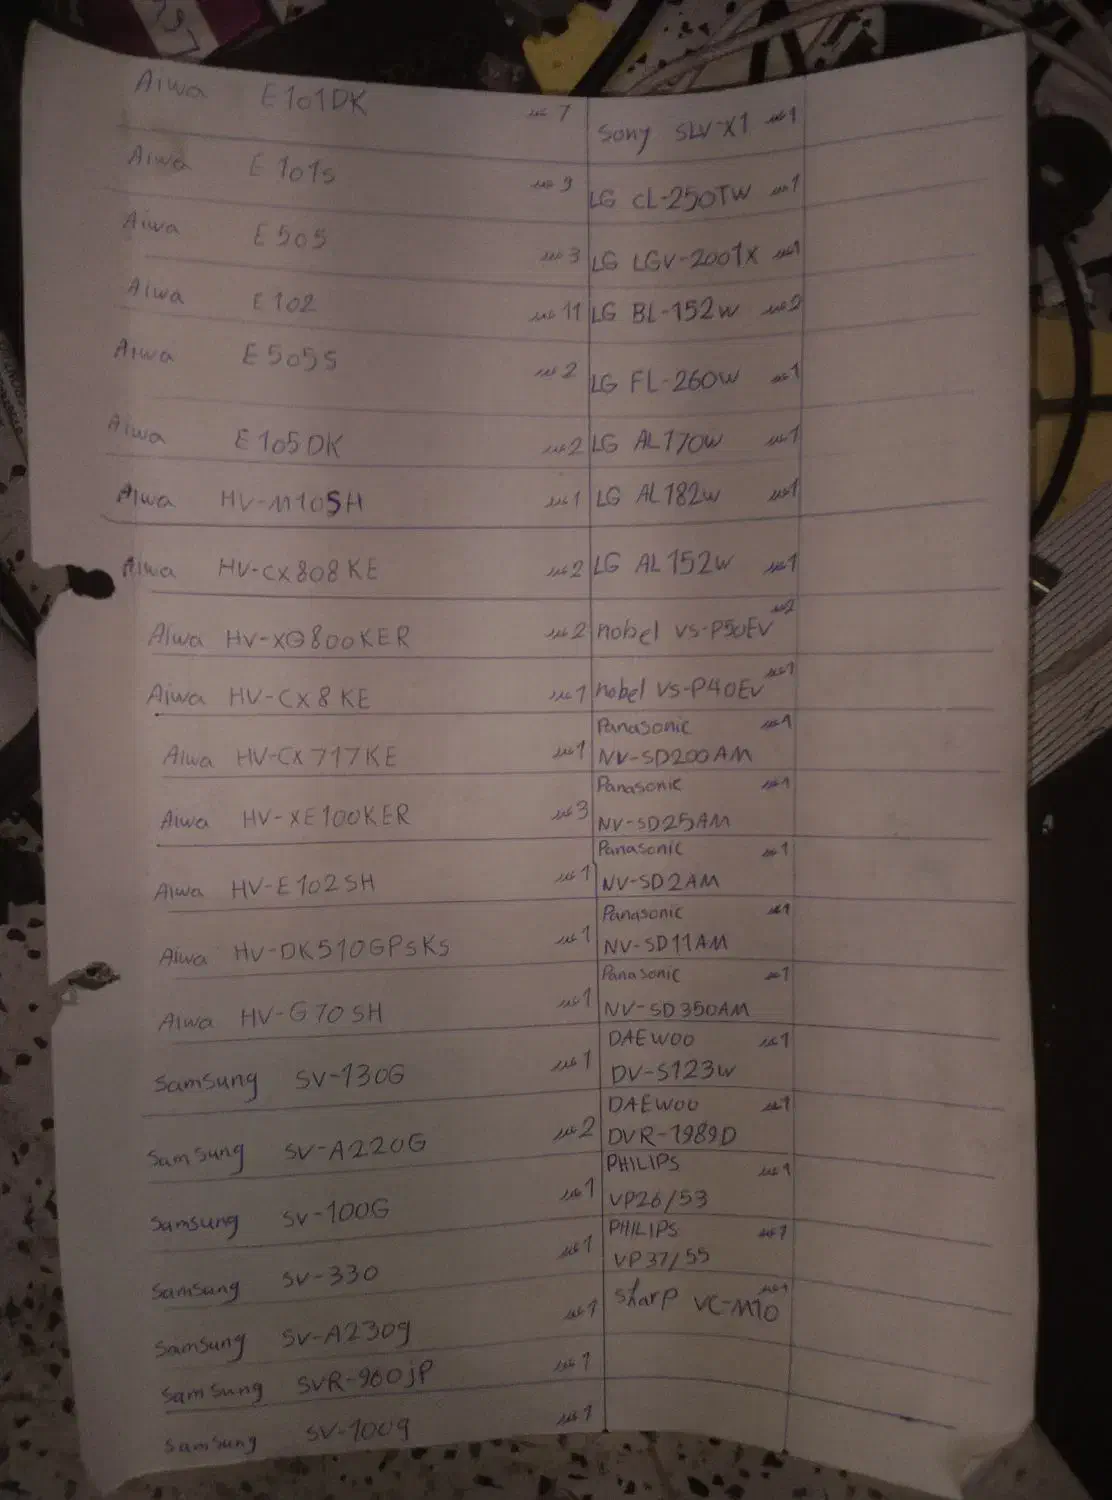 Aiwa E101DK عدد 7
Aiwa E101s عدد 9
Aiwa E505 عدد 3
Aiwa E102 عدد 11
Aiwa E505S عدد 2
Aiwa E105DK عدد 2
Aiwa HV-M105H عدد 1
Aiwa HV-CX808KE عدد 2
Aiwa HV-XG800KER عدد 2
Aiwa HV-CX8KE عدد 1
Aiwa HV-CX717KE عدد 1
Aiwa HV-XE100KER عدد 3
Aiwa HV-E102SH عدد 1
Aiwa HV-DK510GPSKS عدد 1
Aiwa HV-G70SH عدد 1
Samsung SV-130G عدد 1
Samsung SV-A220G عدد 2
Samsung SV-100G عدد 1
Samsung SV-330 عدد 1
Samsung SV-A230g عدد 1
Samsung SVR-960jP عدد 1
Samsung SV-100g عدد 1
Sony SLV-X1 عدد 1
LG CL-250TW عدد 1
LG LGV-2001X عدد 1
LG BL-152W عدد 2
LG FL-260W عدد 1
LG AL170W عدد 1
LG AL182W عدد 1
LG AL152W عدد 1
nobel VS-P50EV عدد 2
nobel VS-P40EV عدد 1
Panasonic عدد 1
NV-SD200AM
Panasonic عدد 1
NV-SD25AM
Panasonic عدد 1
NV-SD2AM
Panasonic عدد 1
NV-SD11AM
Panasonic عدد 1
NV-SD350AM
DAEWOO عدد 1
DV-S123W
DAEWOO عدد 1
DVR-1989D
PHILIPS عدد 1
VP26/53
PHILIPS عدد 1
VP37/55
Sharp VC-M10 عدد 1